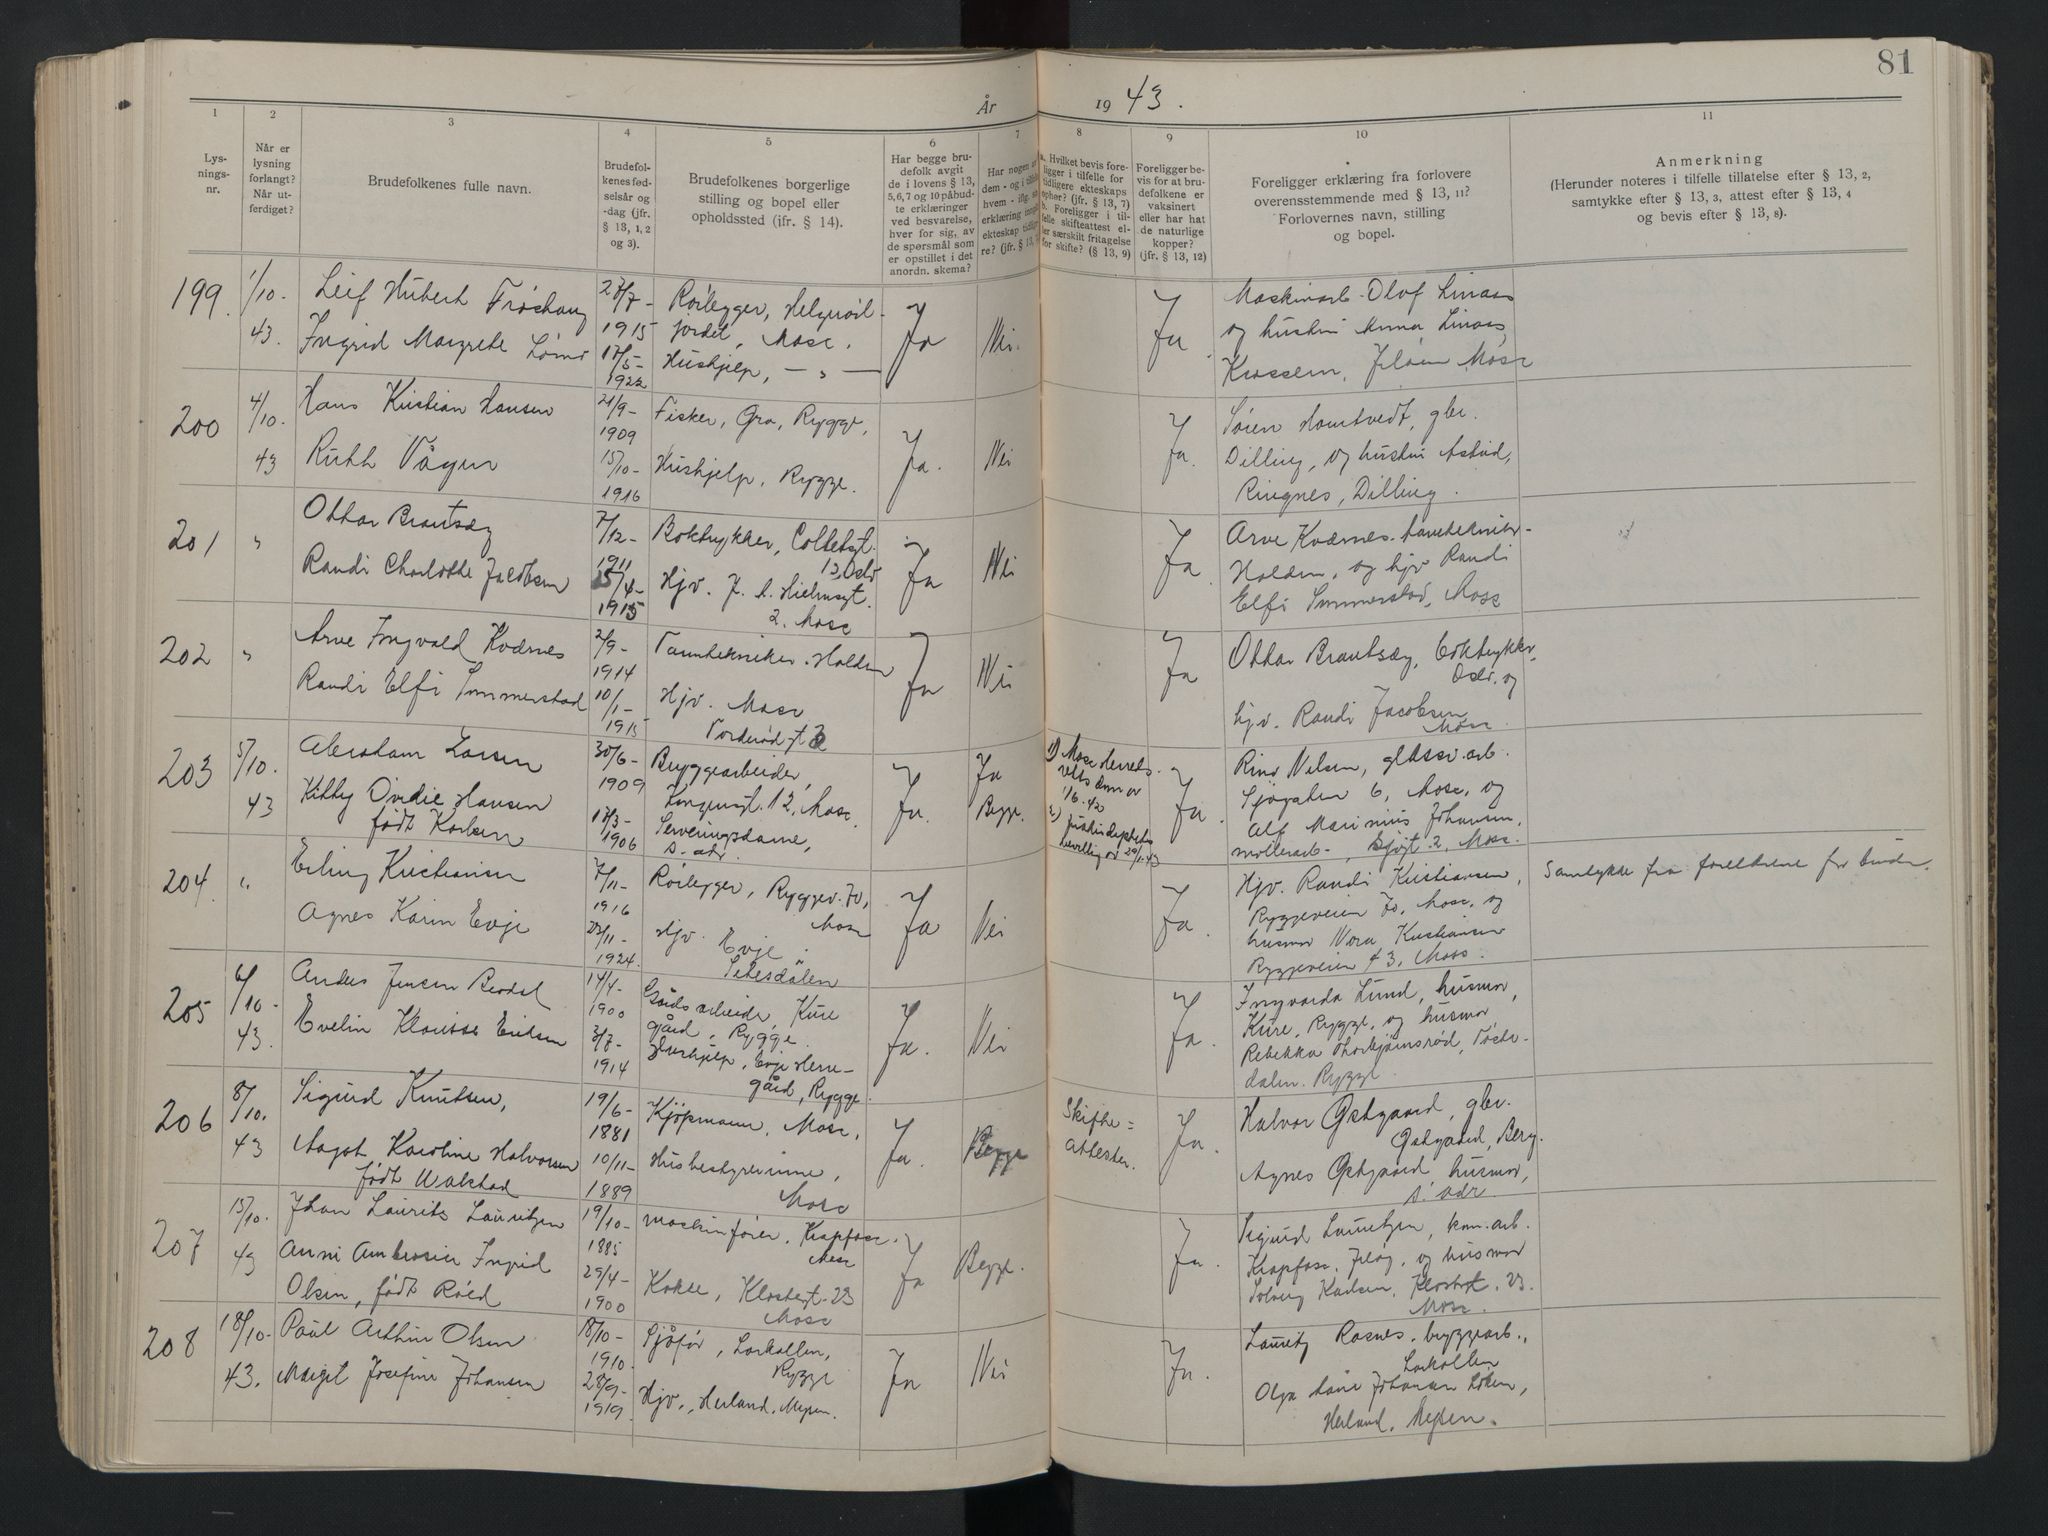 81
År 1943.
1
2
3
4
5
6
7
8
9
10
11
Lys-
nings-
nr.
Når er
lysning
forlangt?
Når ut-
ferdiget?
Brudefolkenes fulle navn.
Brudefol-
kenes fød-
selsår og
-dag (jfr.
§ 13, 1, 2
og 3).
Brudefolkenes borgerlige
stilling og bopel eller
opholdssted (ifr. § 14).
Har begge bru-
defolk avgit
de i lovens § 13,
5, 6, 7 og 10 påbud-
te erklæringer
ved besvarelse,
hver for sig, av
de spørsmål som
er opstillet i det
anordn. skema?
Har nogen av
dem - og i tilfelle
hvem - iflg. sin
erklæring inngått
ekteskap tidlige-
re? (jfr. § 13, 7)
a. Hvilket bevis fore-
ligger i tilfelle for
tidligere ekteskaps
ophør? (jfr. § 13, 7)
b. Foreligger i til-
felle skifteattest el-
ler særskilt fritagelse
for skifte? (§ 13, 9)
Foreligger be-
vis for at bru-
defolkene er
vaksinert
eller har hat
de naturlige
kopper?
(jfr. § 13, 12)
Foreligger erklæring fra forlovere
overensstemmende med § 13, 11?
Forlovernes navn, stilling
og bopel.
Anmerkning
(Herunder noteres i tilfelle tillatelse efter § 13, 2,
samtykke efter § 13, 3, attest efter § 13, 4
og bevis efter § 13, 8).
199. 1/10-43. Leif Hubert
Ingrid Margrete
27/7-1915
17/5-1922
Rørlegger,
jordet, Moss.
Hushjelp, — " —
Ja
Nei.
Ja.
Maskinarb. Olaf Linaas
og hustru Anna Linaas,
Krossern, Jeløen Moss
200 4/10.43 Hans Kristian Hansen
Ruth Vågen
21/9-1909
15/10-1916
Fisker, Gro, Rygge,
Hushjelp, Rygge.
Ja.
Nei
Ja.
Søren Homtvedt, gbr.
Dilling, og hustru Astrid,
Ringnes, Dilling.
201 " Ottar Brautsæg
Randi Charlotte Jacobsen
7/12-1911
5/4-1915
Boktrykker, Colletsgt.
13, Oslo
Hjv.
2. Moss
Ja
Nei
Ja.
Arve Kvernes tanntekniker-
Halden, og hjv Randi
Elfi Simmerstad, Moss
202 " Arve Ingvald Kvernes
Randi Elfi Simmerstad
2/9-1914
10/1-1915
Tanntekniker. Halden
Hjv. Moss
Ja
Nei
Ja
Ottar Brautsæg, boktrykker,
Oslo, og
hjv. Randi Jacobsen
Moss.
203 5/10.43 Abraham Larsen
Kitty Ovidie Hansen
født Karlsen
30/6-1909
17/3-1906
Bryggearbeider,
Kongensgt. 12, Moss.
Serveringsdame,
s. adr.
Ja.
Ja
Begge.
1) Moss Herreds-
retts dom av
1/6.42
2) Justisdeptets
bevillig av 29/1.43
Ja.
Nilsen, glassv.arb.
Sjøgaten 6, Moss, og
Alf Marinius Johansen,
møllearb-, Sjøgt. 2, Moss.
204. " Erling Kristiansen
Agnes Karin Evje
7/11-1916
23/11-1924.
Rørlegger, Ryggev. 70,
Moss
Hjv. Evje
Setesdalen
Ja
Nei
Ja.
Hjv. Randi Kristiansen,
Ryggeveien 70, Moss, og
husmor Nora Kristiansen
Ryggeveien 43, Moss.
Samtykke fra foreldrene for bruden.
205 6/10-43. Anders Jensen Berdal
Evelin Klarisse Eriksen
14/4-1900
3/7-1914
Gårdsarbeider, Kure
gård, Rygge.
Hushjelp, Evje Herre-
gård, Rygge.
Ja.
Nei
Ja.
Ingvarda Lund, husmor,
Kure, Rygge, og husmor
Rebekka Thorbjørnsrød,
dalen. Rygge
206 8/10.43 Sigurd Knutsen,
Aagot Karoline Halvorsen
født Wakstad
19/6-1881
10/11-1889
Kjøpmann, Moss,
Husbestyrerinne,
Moss
Ja.
Begge
Skifte=
attester.
Ja.
Halvor Østgaard, gbr.
Østgaard, Berg.
Agnes Østgaard husmor,
s. adr.
207 15/10.43 Johan Laurits Lauritzen
Anni Ambrosia Ingrid
Olsen, født Røed
19/10-1885
29/4-1900
Maskinfører, Krapfoss.
Moss
Kokke, Klostergt. 23
Moss
Ja
Begge.
Ja.
Sigurd Lauritzen, kom.arb.
Krapfoss, Jeløy, og husmor
Solveig Karlsen, Klostergt. 23.
Moss.
208 18/10-43. Paul Arthur Olsen
Margit Josefine Johansen
18/10-1910.
28/9-1919.
Sjåfør, Larkollen,
Rygge
Hjv., Herland, Mysen.
Ja
Nei
Ja.
Lauritz Rosnes, bryggearb.,
Larkollen
Olga Johansen
Herland, Mysen.